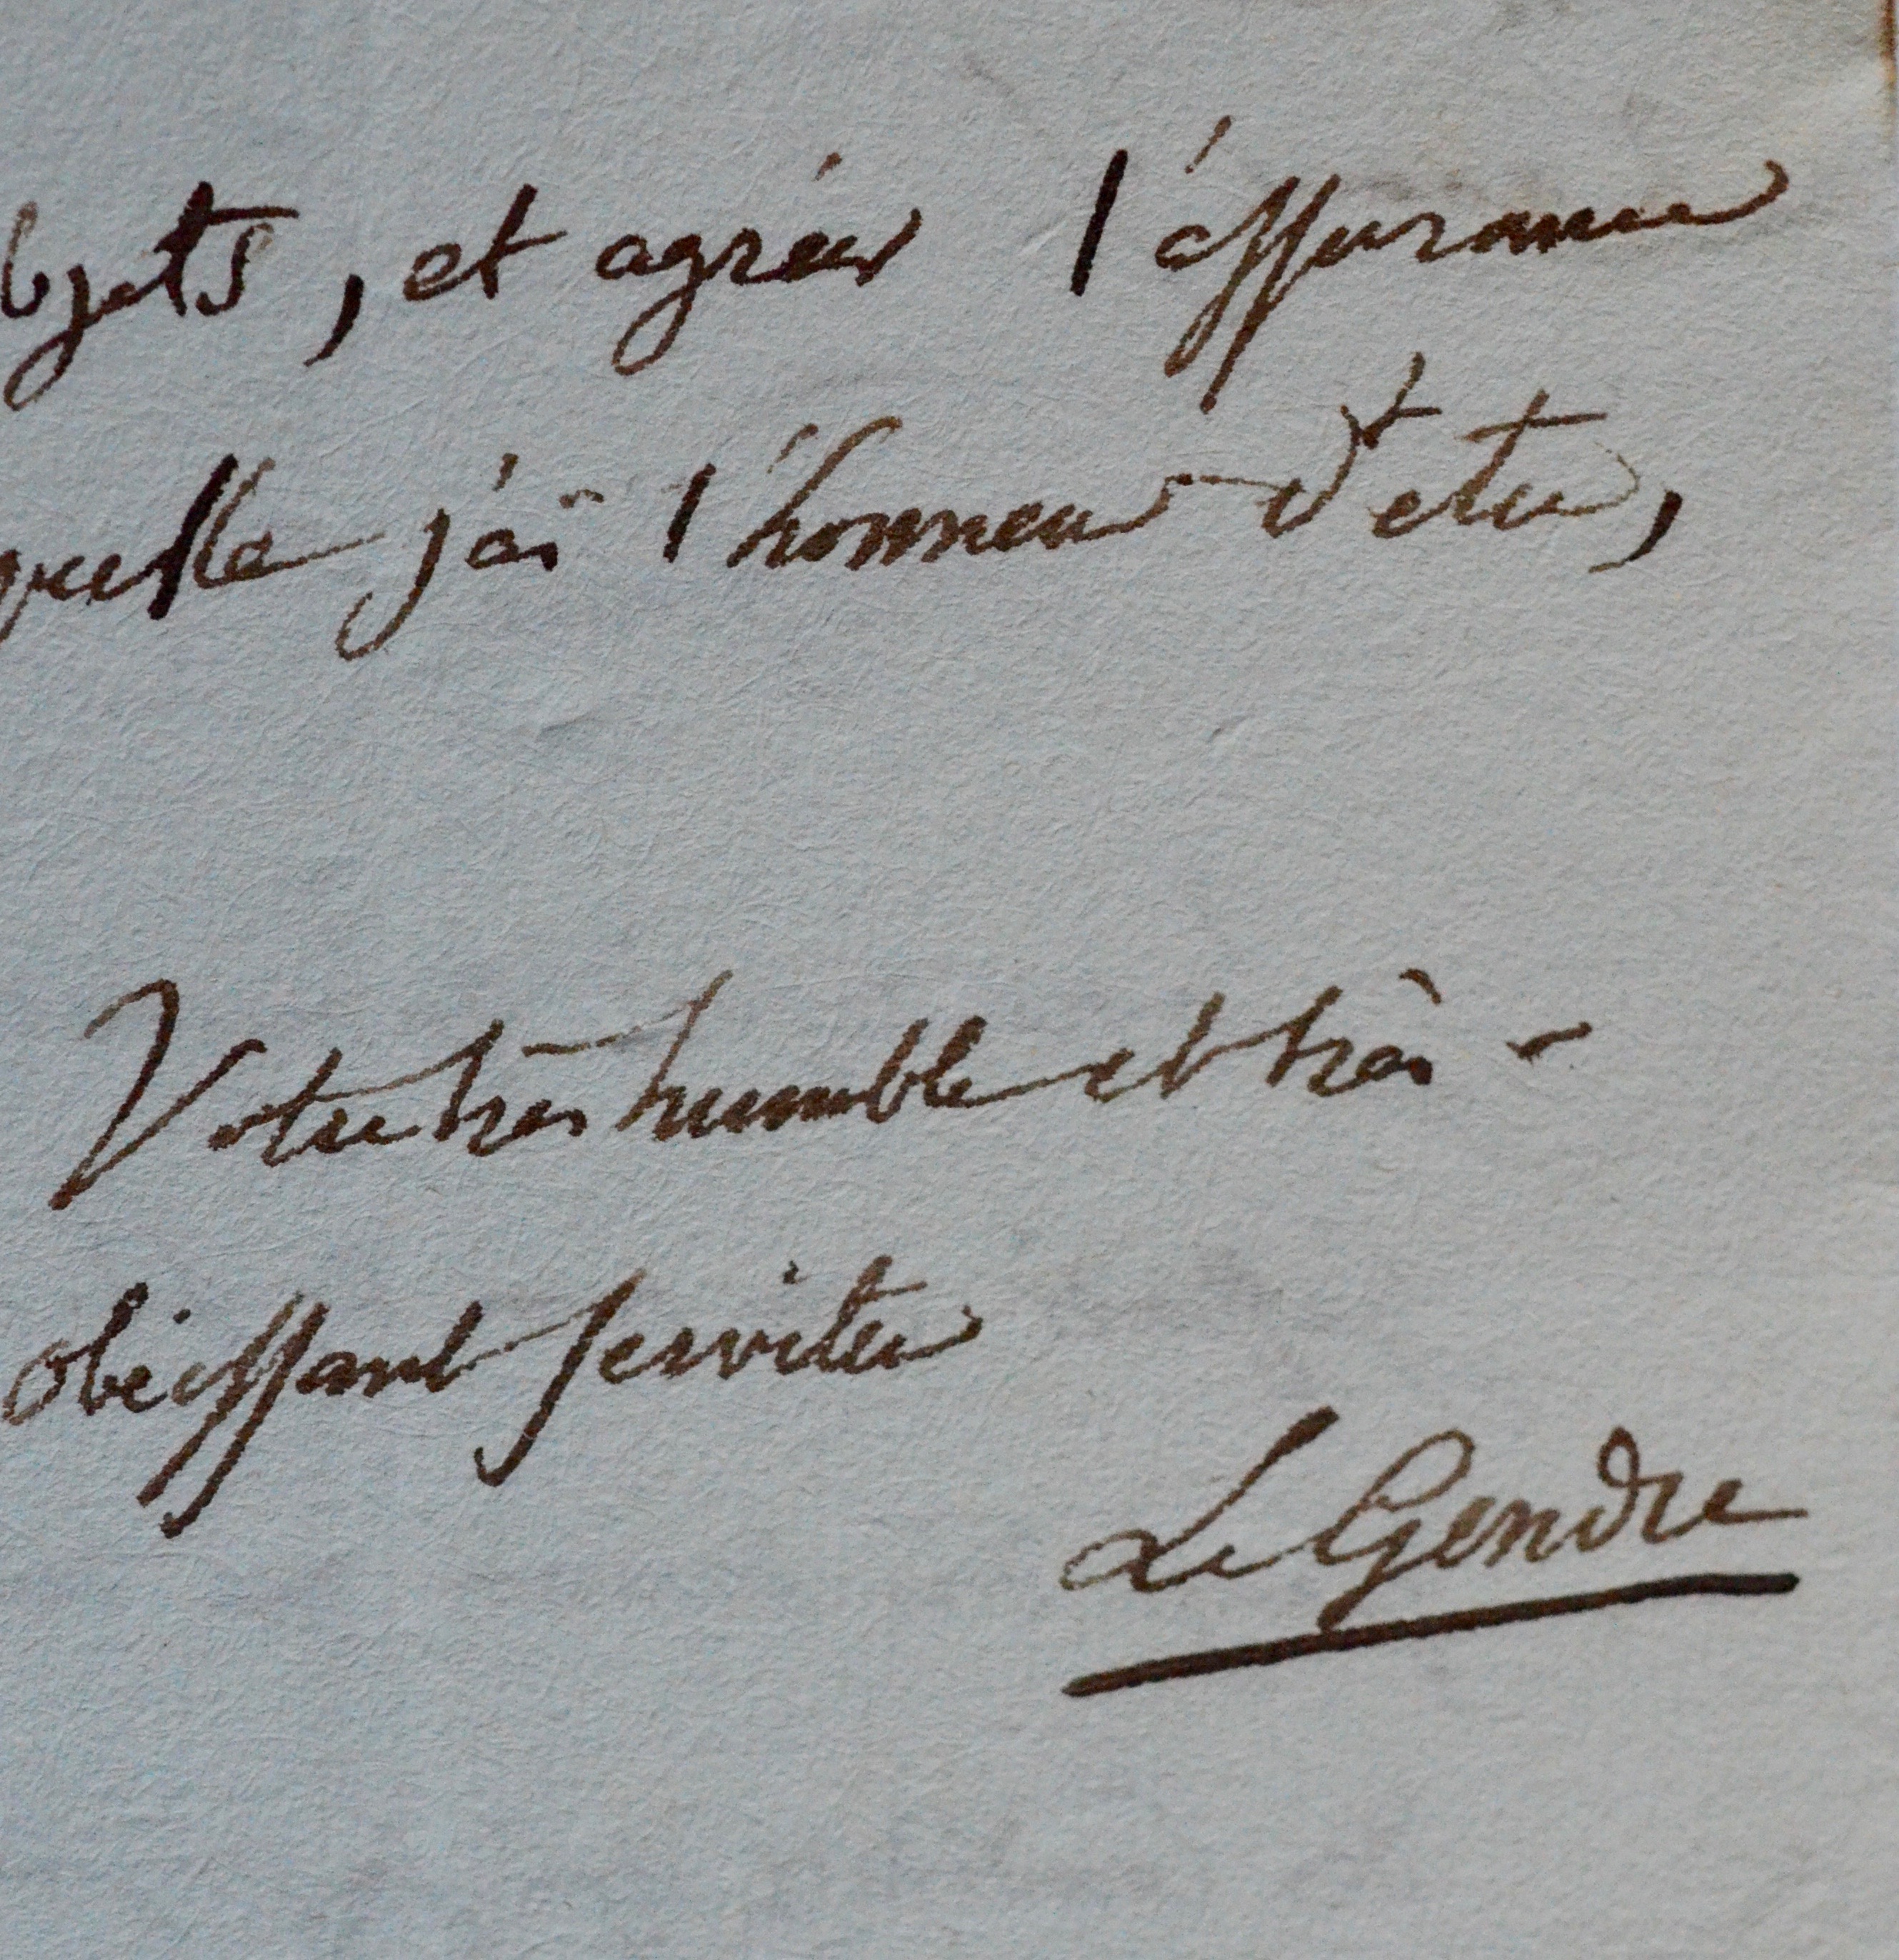 bjets, et agréer l'assurance
quelle j'ai l'honneur d'etre,
Votre très humble et très -
obéissant serviteur
Le Gendre